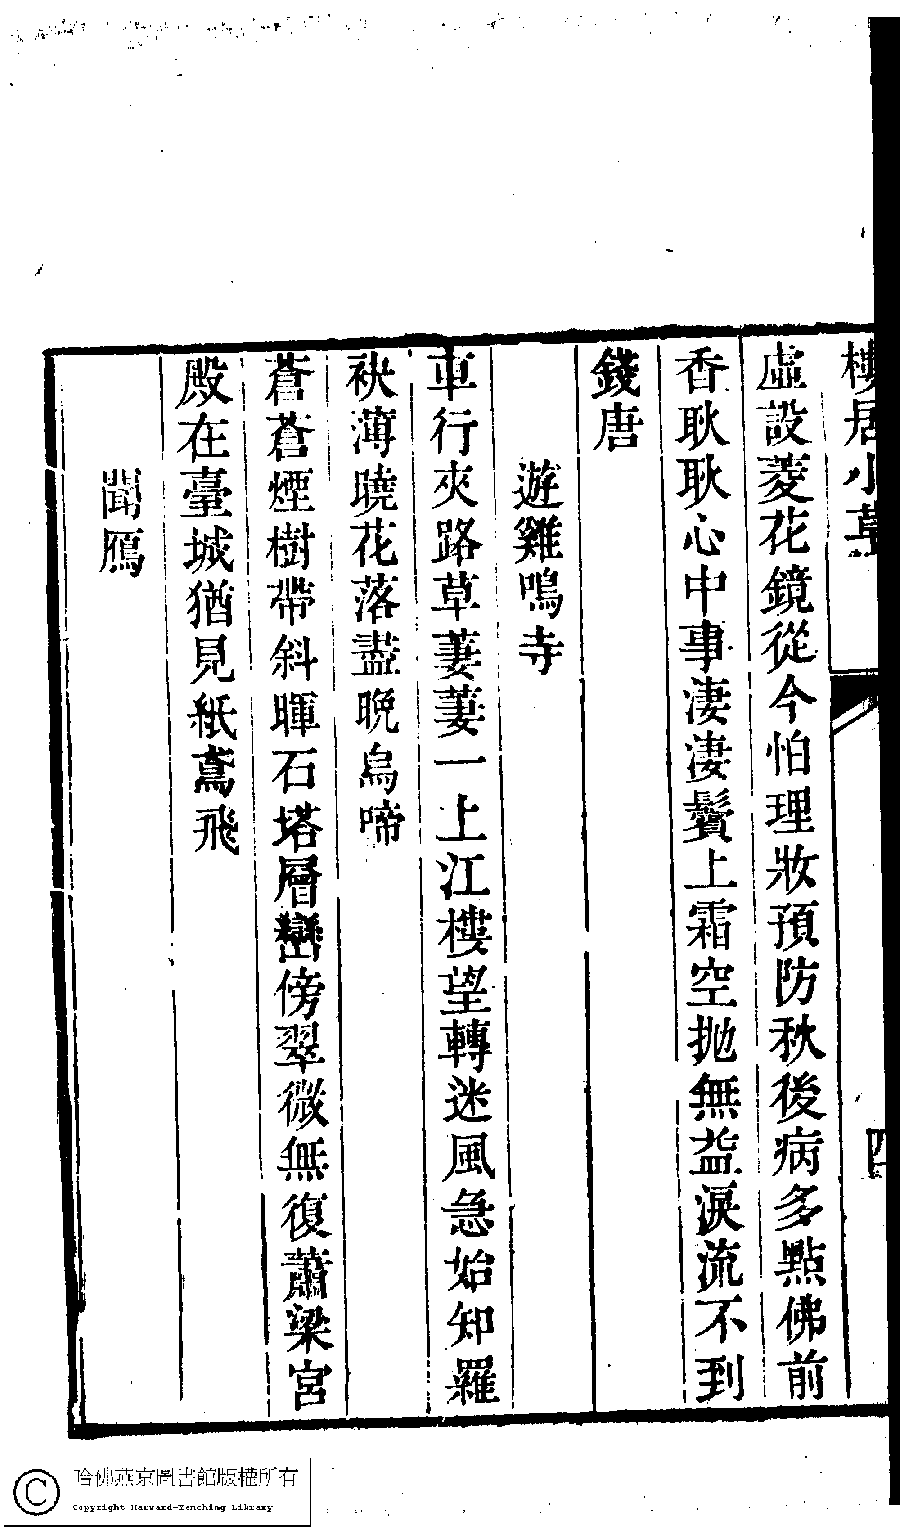 樓居小草
四
虛設菱花鏡從今怕理妝預防秋後病多點佛前
香耿耿心中事凄凄鬢上霜空拋無益淚流不到
錢唐
遊雞鳴寺
車行夾路草萋萋一上江樓望轉迷風急始知羅
袂薄曉花落盡晚烏啼
蒼蒼煙樹帶斜暉石塔層巒傍翠微無復蕭梁宮
殿在臺城猶見紙鳶飛
聞鴈
哈佛燕京圖書館版權所有
Copyright Harvard-Yenching Library